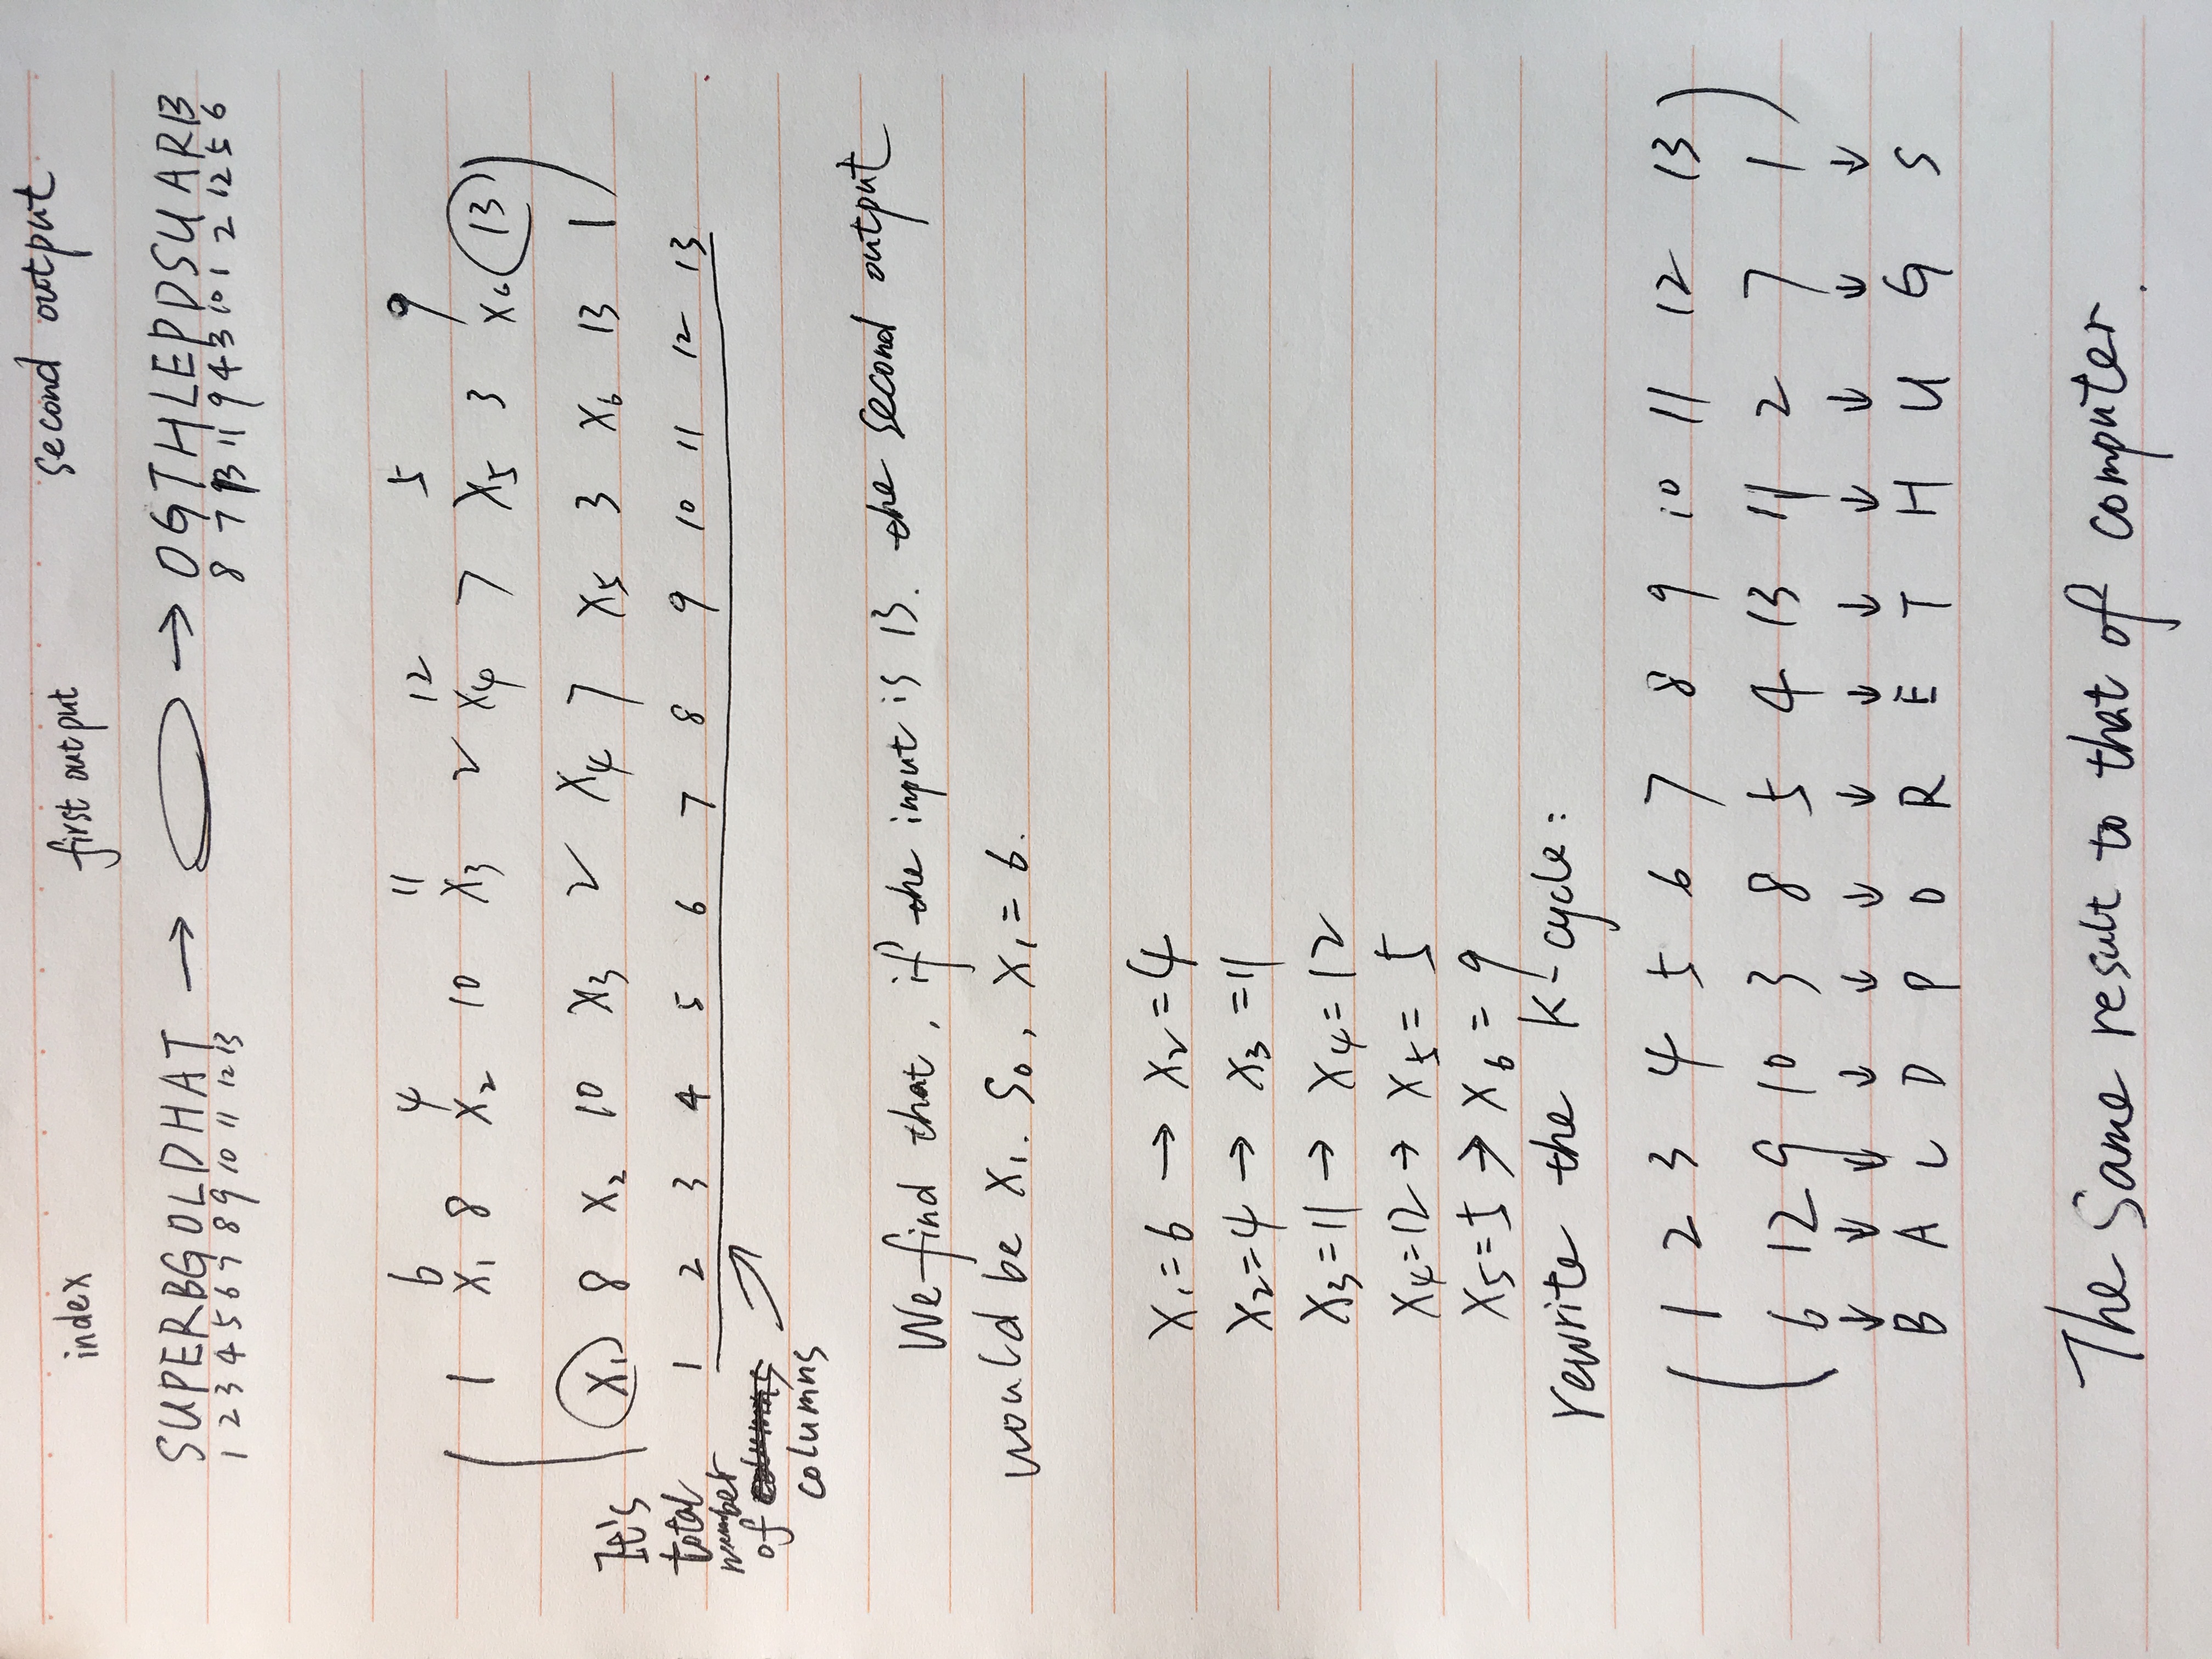 index first output second output
SUPERBGOLDHAT → → OGTHLEPDSUARB
1 2 3 4 5 6 7 8 9 10 11 12 13 8 7 13 11 9 4 3 10 1 2 12 5 6
6 4 11 12 5 9
( 1 x₁ 8 x₂ 10 x₃ 2 x₄ 7 x₅ 3 x₆ 13 )
( x₁ 8 x₂ 10 x₃ 2 x₄ 7 x₅ 3 x₆ 13 1 )
1 2 3 4 5 6 7 8 9 10 11 12 13
It's
total
number
of
columns
We find that, if the input is 13. the second output
would be x₁. So, x₁=6.
x₁=6 → x₂=4
x₂=4 → x₃=11
x₃=11 → x₄=12
x₄=12 → x₅=5
x₅=5 → x₆=9
rewrite the k-cycle:
( 1 2 3 4 5 6 7 8 9 10 11 12 13 )
( 6 12 9 10 3 8 5 4 13 11 2 7 1 )
↓ ↓ ↓ ↓ ↓ ↓ ↓ ↓ ↓ ↓ ↓ ↓ ↓
B A L D P O R E T H U G S
The same result to that of computer.